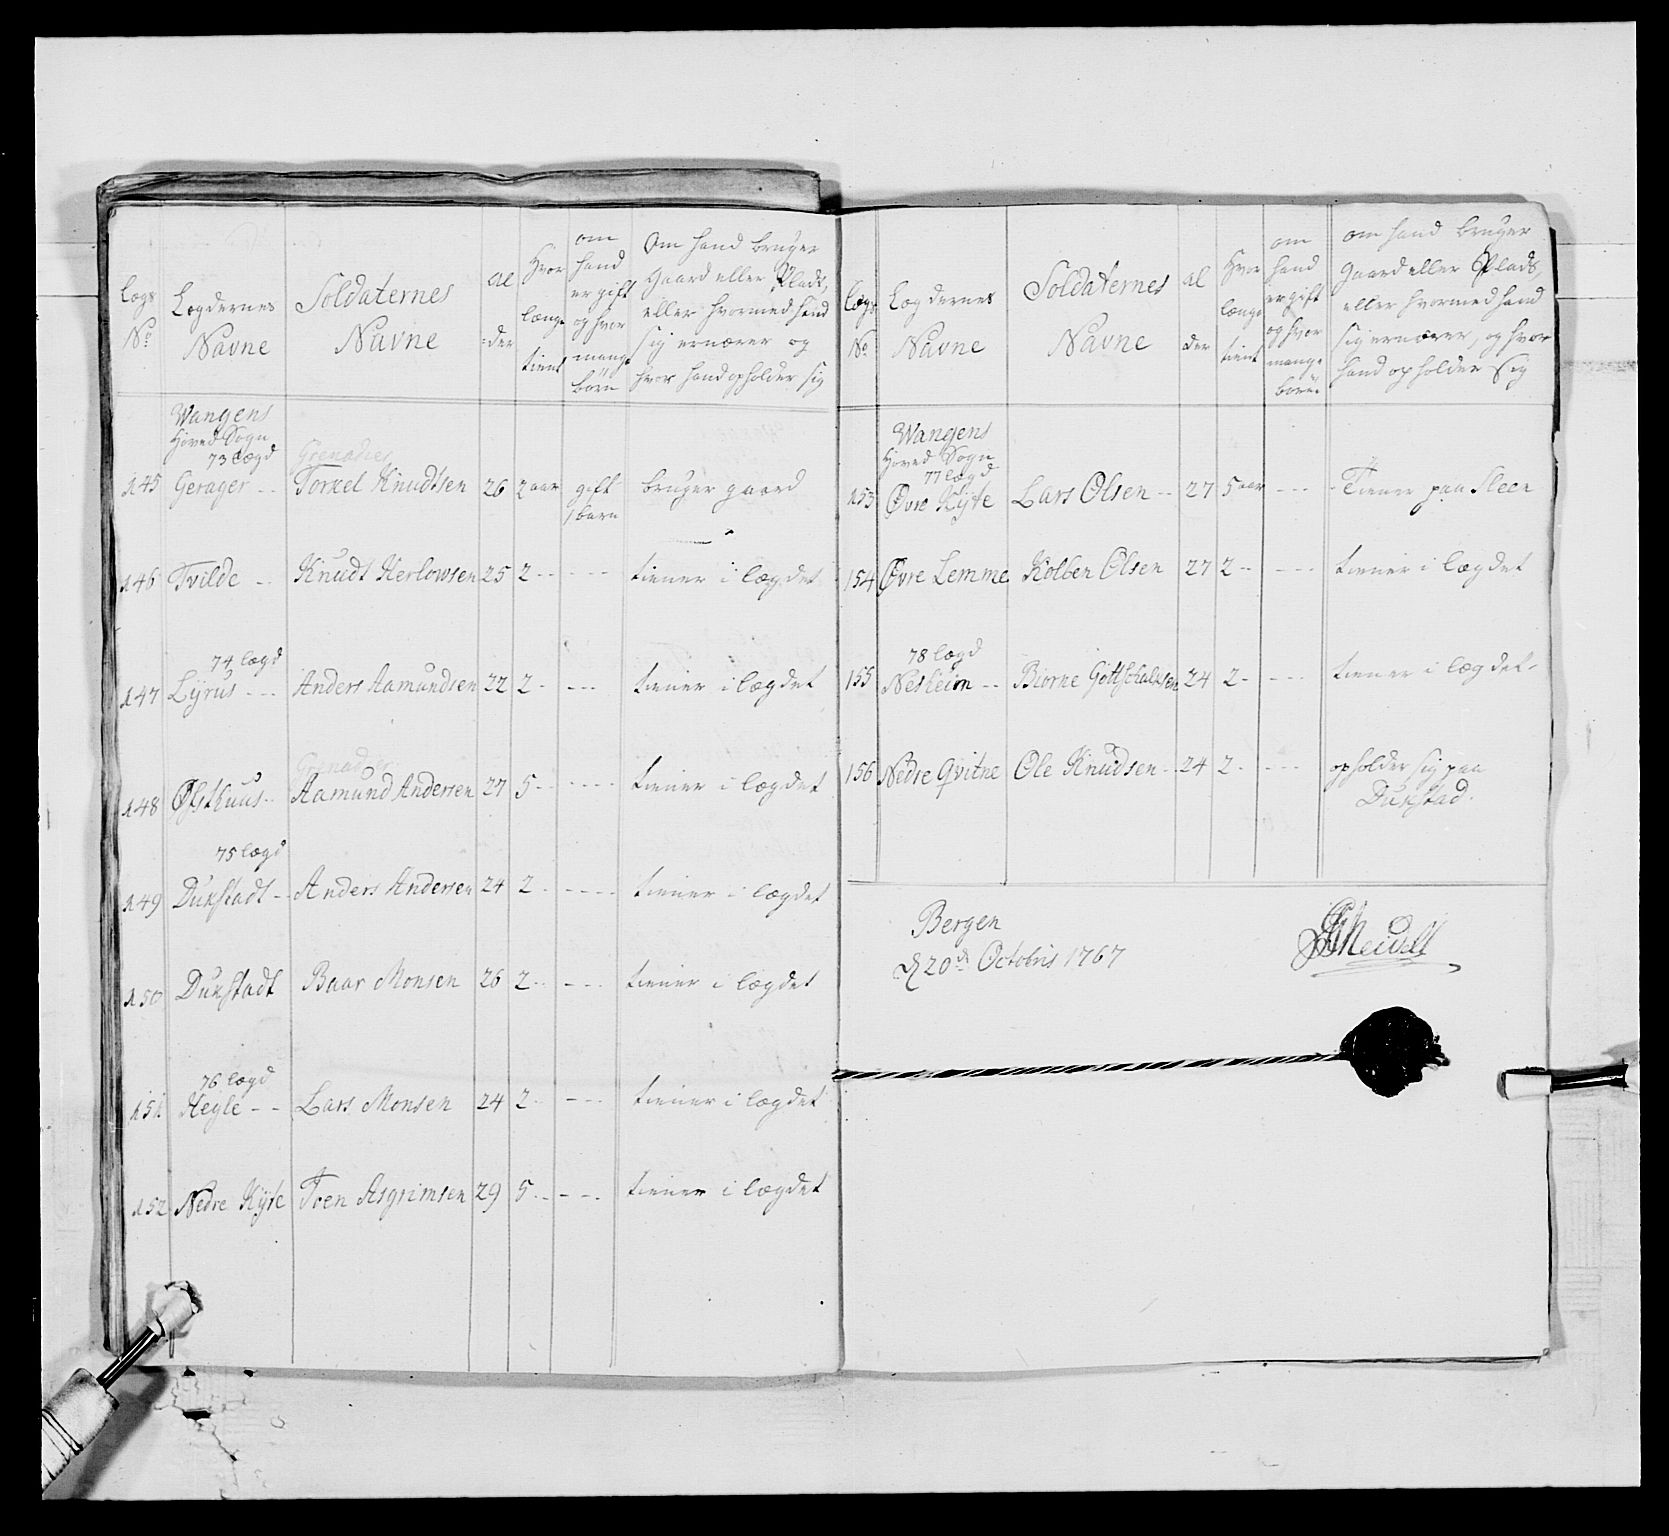 Lægs No
Lægdernes Navne
Soldaternes Navne
al der
Hvor længe tient
om hand er gift og hvor mange börn
Om hand bruger
Gaard eller Plads,
eller hvormed hand
sig ernærer og
hvor hand opholder sig
Wangens
Hoved Sogn
73 lægd
Grenadier
145 Gerager -- Torkel Knudtsen 26 2 aar gift bruger gaard
1 barn
146 Tvilde -- Knudt Herlowsen 25 2 -- --- tiener i lægdet
74 lægd
147 Lijrus --- Anders Aamundsen 22 2 - --- tiener i lægdet
Grenadier
148 Ølsthuus -- Aamund Andersen 27 5 -- ---- tiener i lægdet
75 lægd
149 Dukstadt - Anders Andersen 24 2 - ---- tiener i lægdet
150 Dukstadt Baar Monsen 26 2 -- --- tiener i lægdet
76 lægd
151 Hegle -- Lars Monsen 24 2 -- --- tiener i lægdet
152 Nedre Kijte Toen Asgrimsen 29 5 -- --- tiener i lægdet
Lægs No
Lægdernes Navne
Soldaternes Navne
al der
Hvor længe tient
om hand er gift og hvor mange börn
om hand bruger
gaard eller Plads,
eller hvormed hand
sig ernærer, og hvor
hand opholder sig
Wangens
Hoved Sogn
77 lægd
153 Øvre Kijte Lars Olsen -- 27 5 aar --- Tiener paa Sleen
154 Øvre Lemme Kolben Olsen 27 2 -- --- tiener i lægdet
78 lægd
155 Nesheim -- Biorne Gottschalksen 24 2 - --- tiener i lægdet -
156 Nedre Qvitne Ole Knudsen - 24 2 - --- opholder sig paa
Dukstad.
Bergen
d 20de Octobris 1767